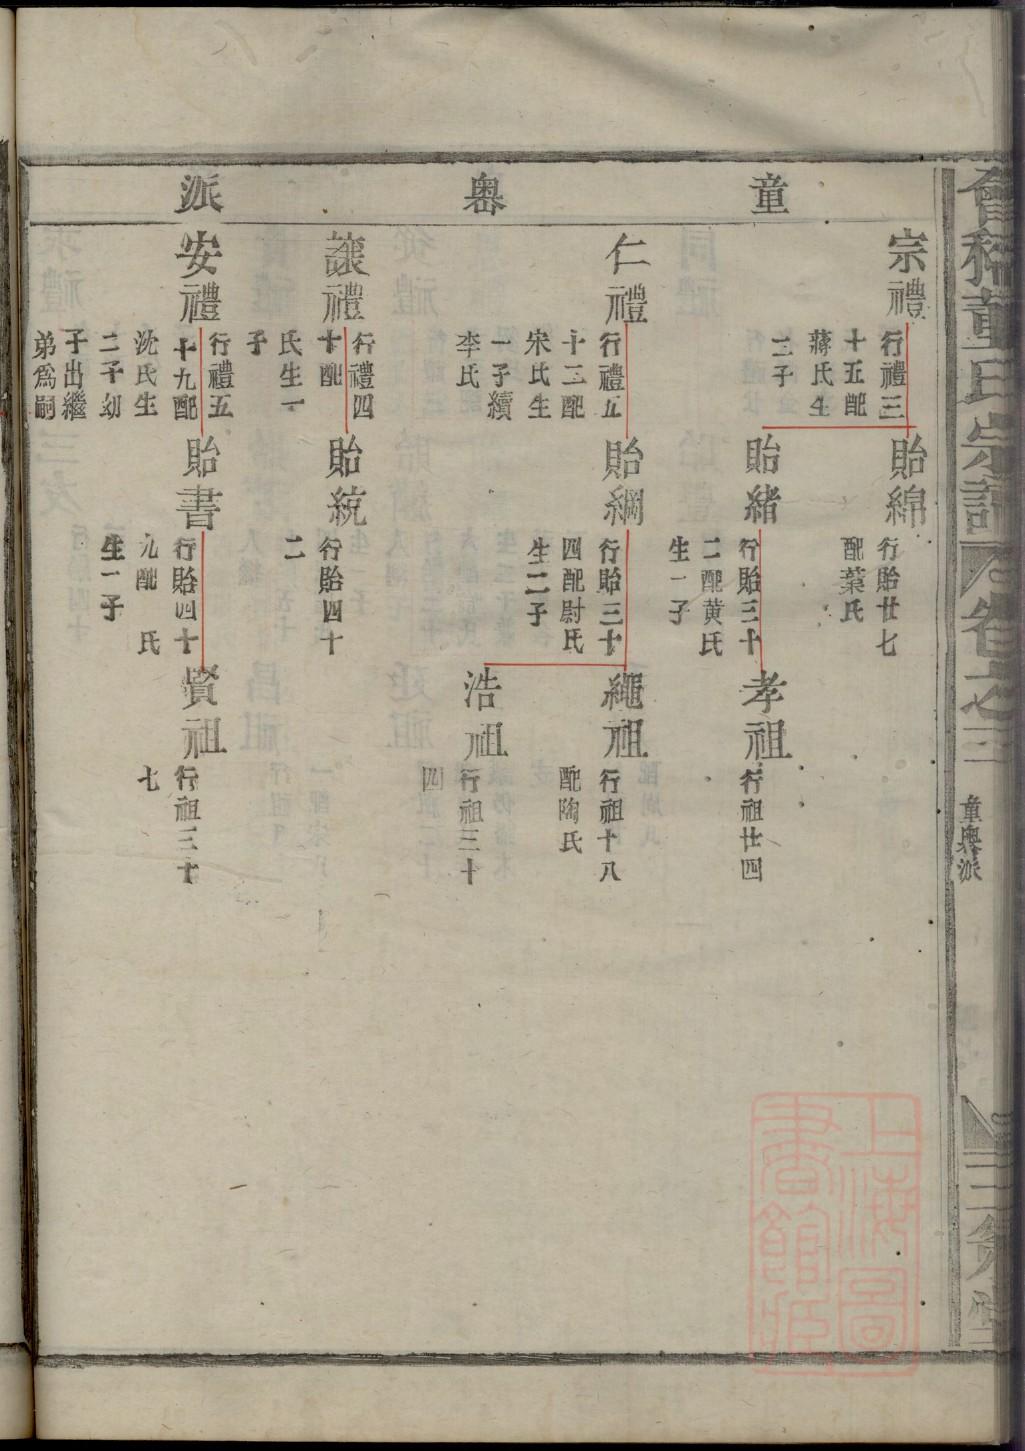 會稽童氏宗譜
卷之三
童嶴派
童嶴派
宗禮
行禮三
十五配
蔣氏生
二子
貽綿
行貽廿七
配葉氏
貽緒
行貽三十
二配黃氏
生一子
孝祖
行祖廿四
仁禮
行禮五
十三配
宋氏生
一子續
李氏
貽綱
行貽三十
四配尉氏
生二子
繩祖
行祖十八
配陶氏
浩祖
行祖三十
四
讓禮
行禮四
十配
氏生一
子
貽統
行貽四十
二
安禮
行禮五
十九配
沈氏生
二子幼
子出繼
弟爲嗣
貽書
行貽四十
九配 氏
生一子
賢祖
行祖三十
七
上海圖
書館藏